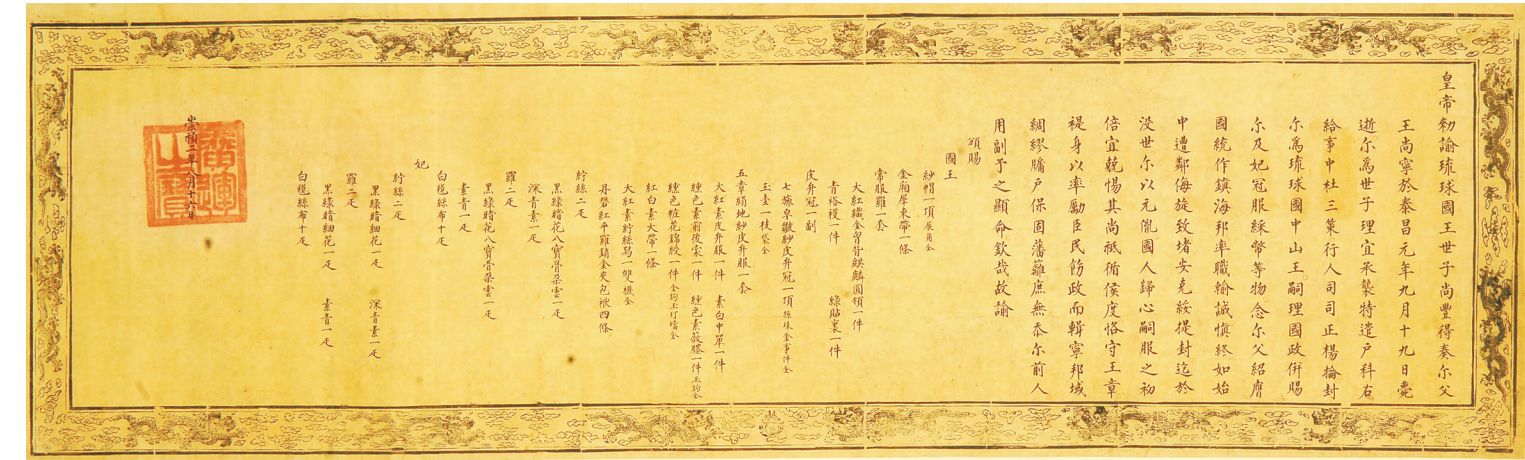 皇帝勑諭琉球國王世子尚豐得奏尔父
王尚寧於泰昌元年九月十九日薨
逝尔爲世子理宜承襲特遣户科右
給事中杜三策行人司司正楊掄封
尔爲琉球國中山王嗣理國政併賜
尔及妃冠服綵幣等物念尔父紹膺
國統作鎮海邦率職輸誠慎終如始
中遭鄰侮旋致堵安克綏提封迄於
没世尔以元胤國人歸心嗣服之初
倍宜兢惕其尚祗循侯度恪守王章
禔身以率勵臣民飭政而輯寧邦域
綢繆牖户保固藩籬庶無忝尔前人
用副予之顯命欽哉故諭
頒賜
國王
紗帽一頂展角全
金廂犀束帶一條
常服羅一套
大紅織金胷背麒麟圓領一件
青褡𧞤一件 綠貼裏一件
皮弁冠一副
七旒皁皺紗皮弁冠一頂旒珠金事件全
玉圭一枝袋全
五章絹地紗皮弁服一套
大紅素皮弁服一件 素白中單一件
纁色素前後裳一件 纁色素蔽膝一件玉鈎全
纁色粧花錦綬一件金鈎玉玎璫全
紅白素大帶一條
大紅素紵絲舄一雙襪全
丹礬紅平羅銷金夾包袱四條
紵絲二疋
黑綠暗花八寶骨朵雲一疋
深青素一疋
羅二疋
黑綠暗花八寶骨朵雲一疋
素青一疋
白氁絲布十疋
妃
紵絲二疋
黑綠暗細花一疋 深青素一疋
羅二疋
黑綠暗細花一疋 素青一疋
白氁絲布十疋
崇禎二年八月十六日
廣運之寶